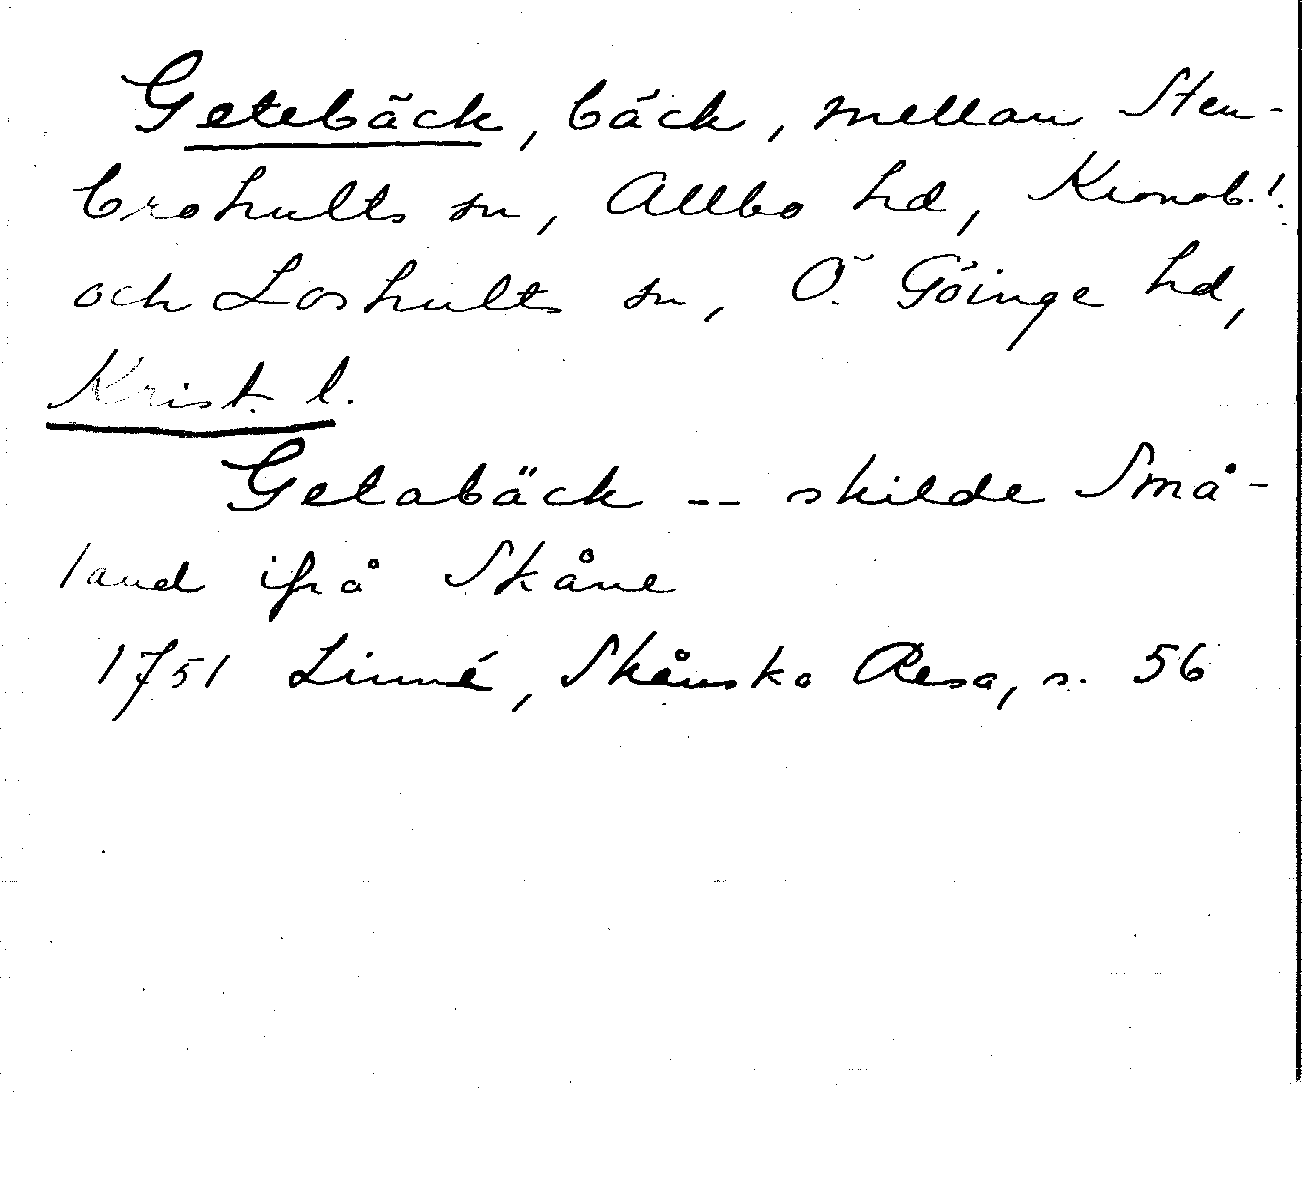 Getebäck, bäck, mellan Sten-
brohults sn, Allbo hd, Kronob. l.
och Loshults sn, Ö. Göinge hd,
Krist. l.
Getabäck -- skilde Små-
land ifrå Skåne
1751 Linné, Skånska Resa, s. 56